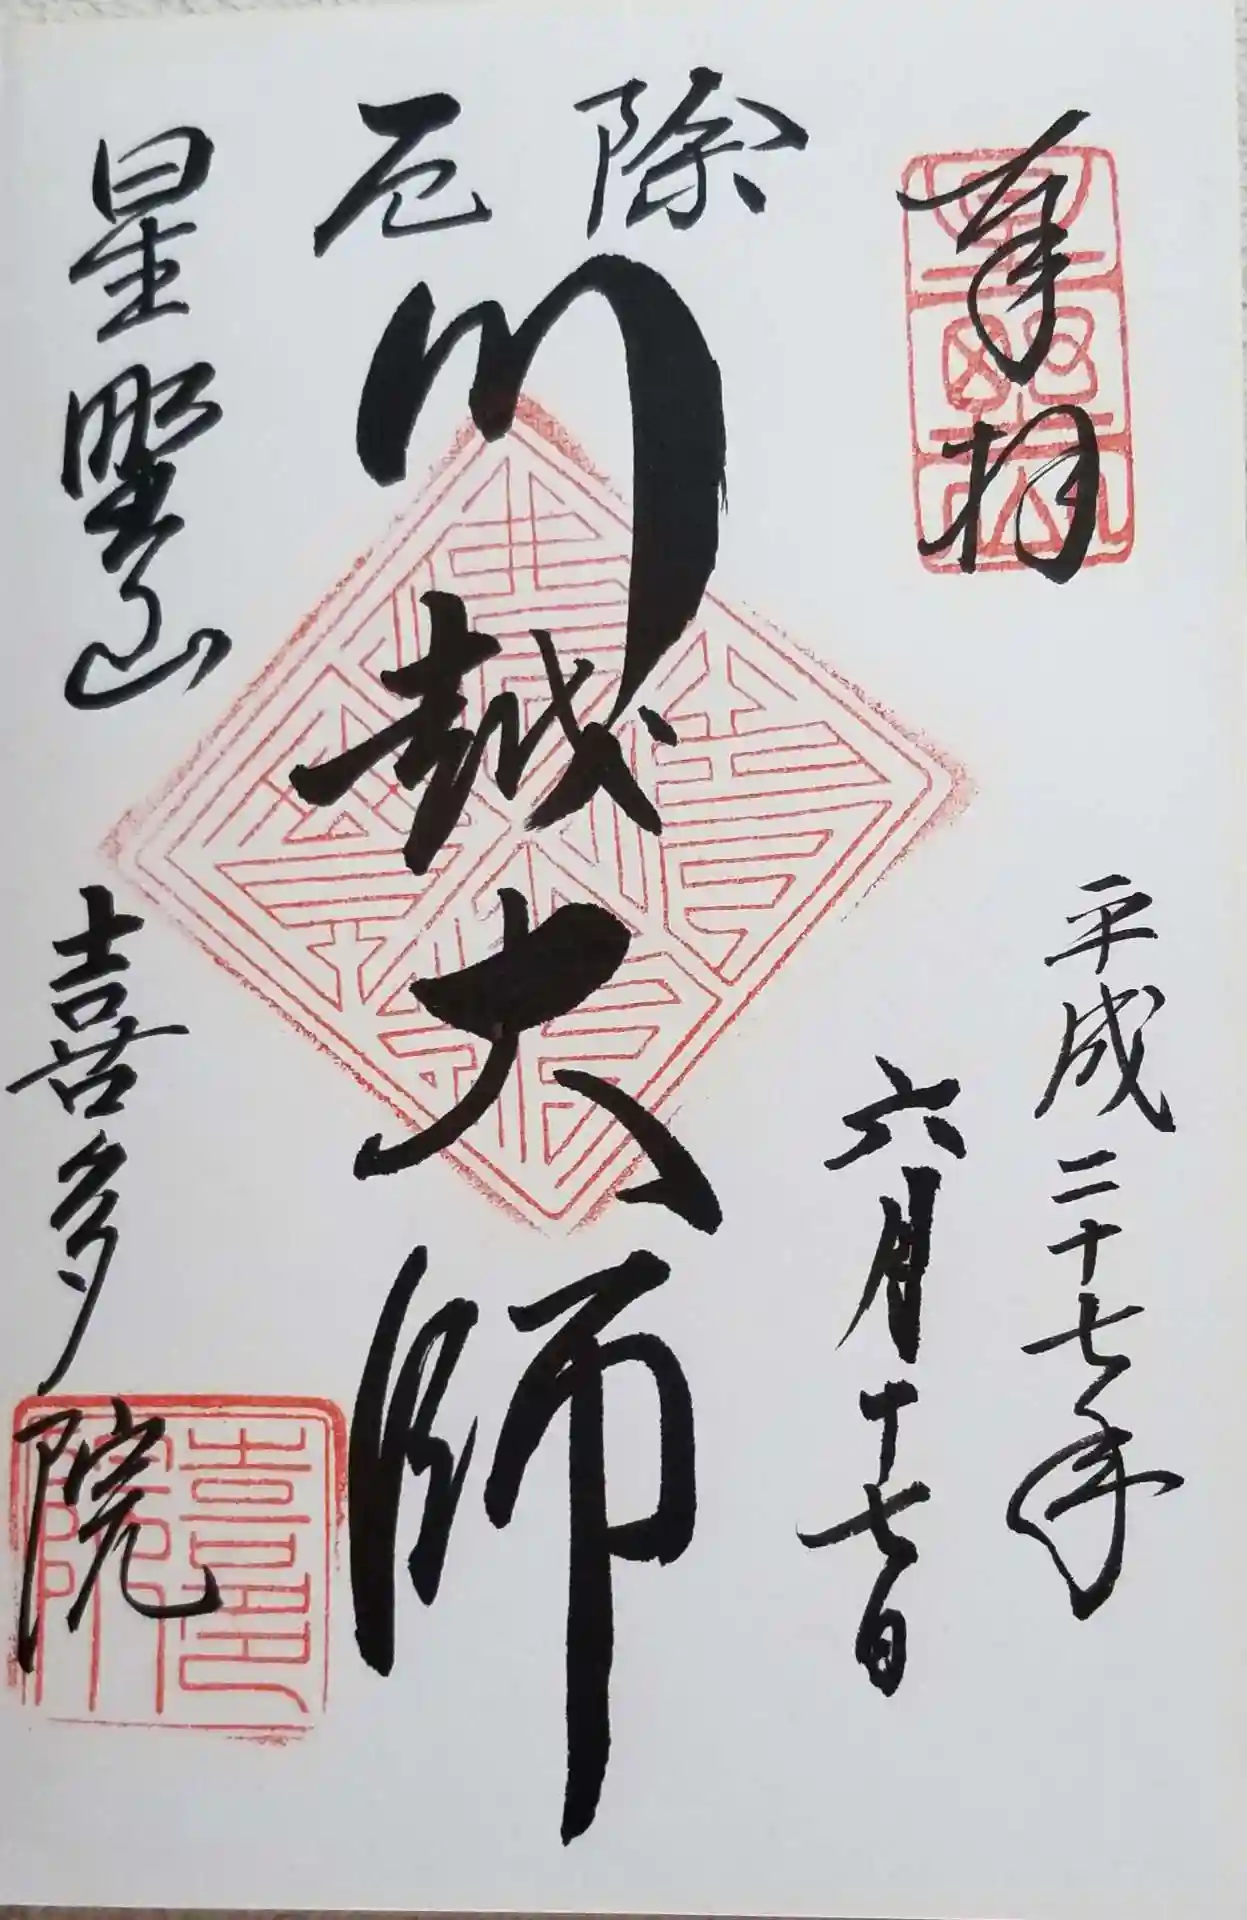 奉拝
平成二十七年
六月十七日
除厄
川越大師
星野山
喜多院
喜多院